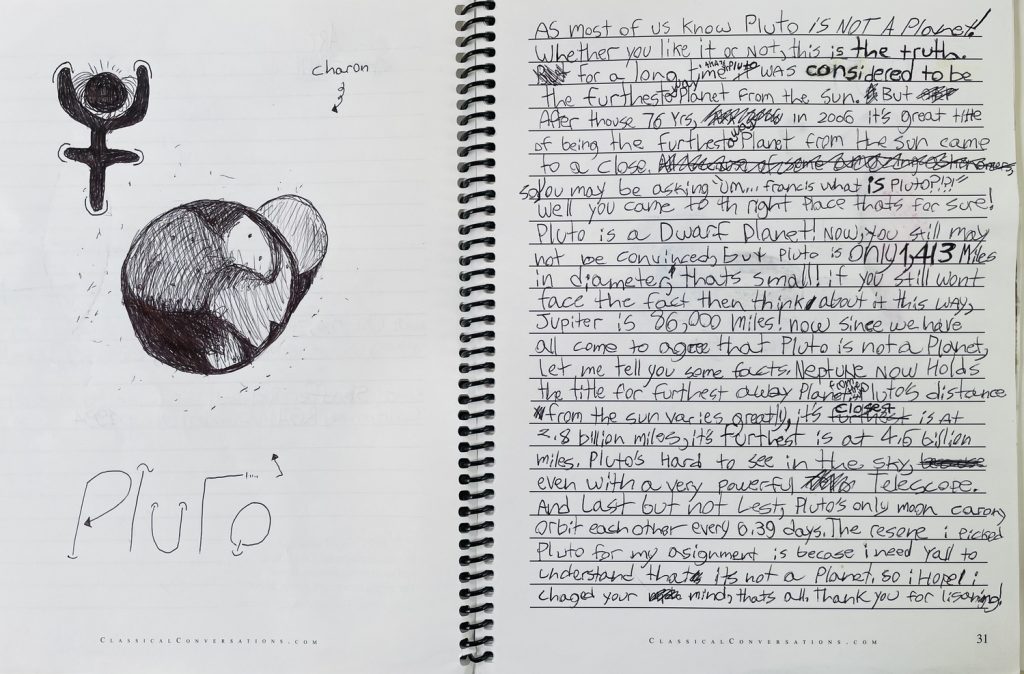 charon
PluTo
CLASSICALCONVERSATIONS.COM
As most of us know Pluto is NOT A Planet!
Whether you like it or not, this is the truth.
for a long time that Pluto was considered to be
the furthest away Planet from the sun. But
After thouse 76 yrs, in 2006 it's great title
of being the furthest away Planet from the sun came
to a close.
so you may be asking "um... francis what is Pluto?!?!"
Well you came to th right Place thats for sure!
Pluto is a Dwarf Planet! Now, you still may
not be convinced, but Pluto is only 1,413 Miles
in diameter, thats small! if you still wont
face the fact then think about it this way,
Jupiter is 86,000 miles! now since we have
all come to agree that Pluto is not a Planet,
let me tell you some facts. Neptune Now Holds
the title for furthest away Planet. Pluto's distance
from the sun varies greatly, it's closest is at
2.8 billion miles, it's furthest is at 4.5 billion
miles. Pluto's Hard to see in the sky,
even with a very powerful Telescope.
And Last but not Lest, Pluto's only moon caron,
orbit each other every 6.39 days. The resone i picked
Pluto for my asignment is becase i need yall to
understand that its not a Planet. so i Hope i
chaged your mind, thats all. Thank you for lisoning.
CLASSICALCONVERSATIONS.COM
31